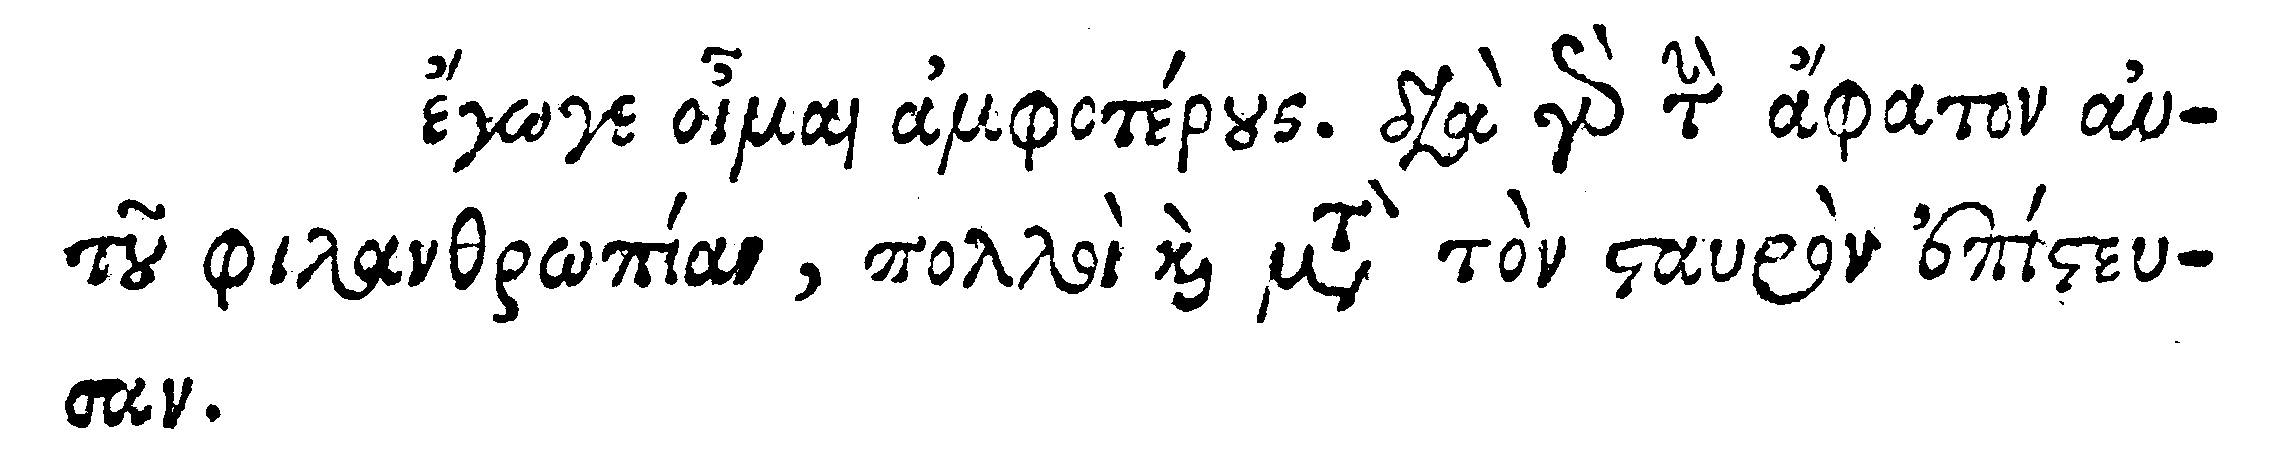 ἔγωγε οἶμαι ἀμφοτέρους. διὰ γὰρ τὴν ἄφατον αὐ-
τοῦ φιλανθρωπίαν, πολλοὶ καὶ μετὰ τὸν σταυρὸν ἐπίστευ-
σαν.